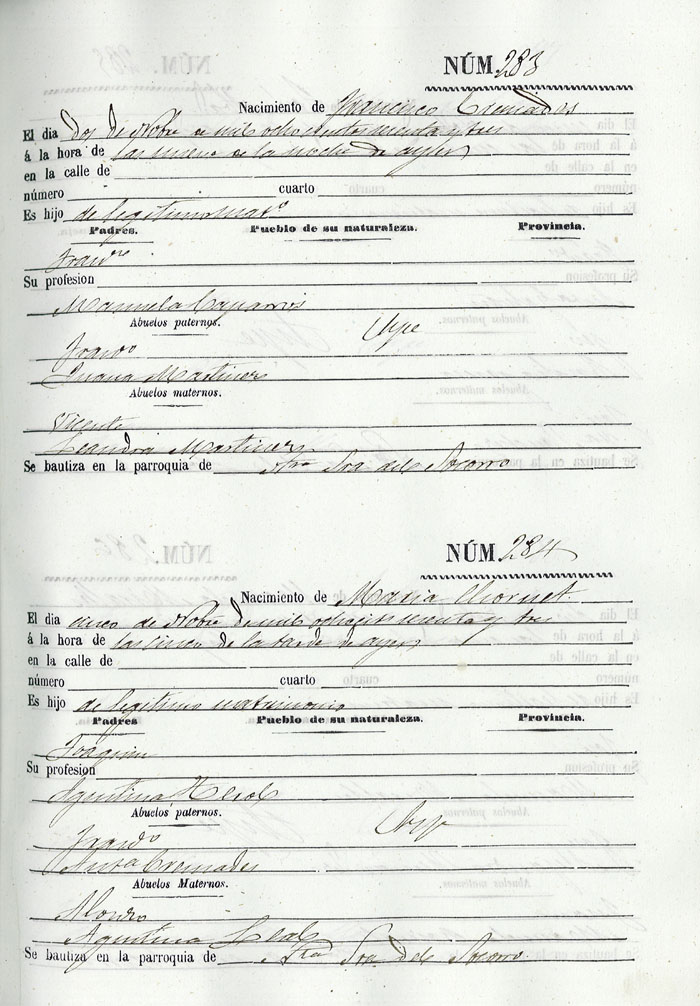 NÚM. 283
Nacimiento de Francisco Cremades
El dia dos de Nobre de mil ochocientos sesenta y tres
á la hora de las nueve de la noche de ayer
en la calle de
número cuarto
Es hijo de legitimo mato
Padres. Pueblo de su naturaleza. Provincia.
Franco
Su profesion
Manuela Caparros
Abuelos paternos.
Aspe
Franco
Juana Martinez
Abuelos maternos.
Vicente
Leandra Martinez
Se bautiza en la parroquia de Ntra Sra del Socorro
NÚM. 284
Nacimiento de Maria Chornet
El dia cinco de Nobre de mil ochocits sesenta y tres
á la hora de las cinco de la tarde de ayer
en la calle de
número cuarto
Es hijo de legitimo matrimonio
Padres Pueblo de su naturaleza. Provincia.
Joaquin
Su profesion
Agustina
Abuelos paternos.
Aspe
Franco
Cremades
Abuelos Maternos.
Alonzo
Agustina Leal
Se bautiza en la parroquia de Ntra Sra del Socorro